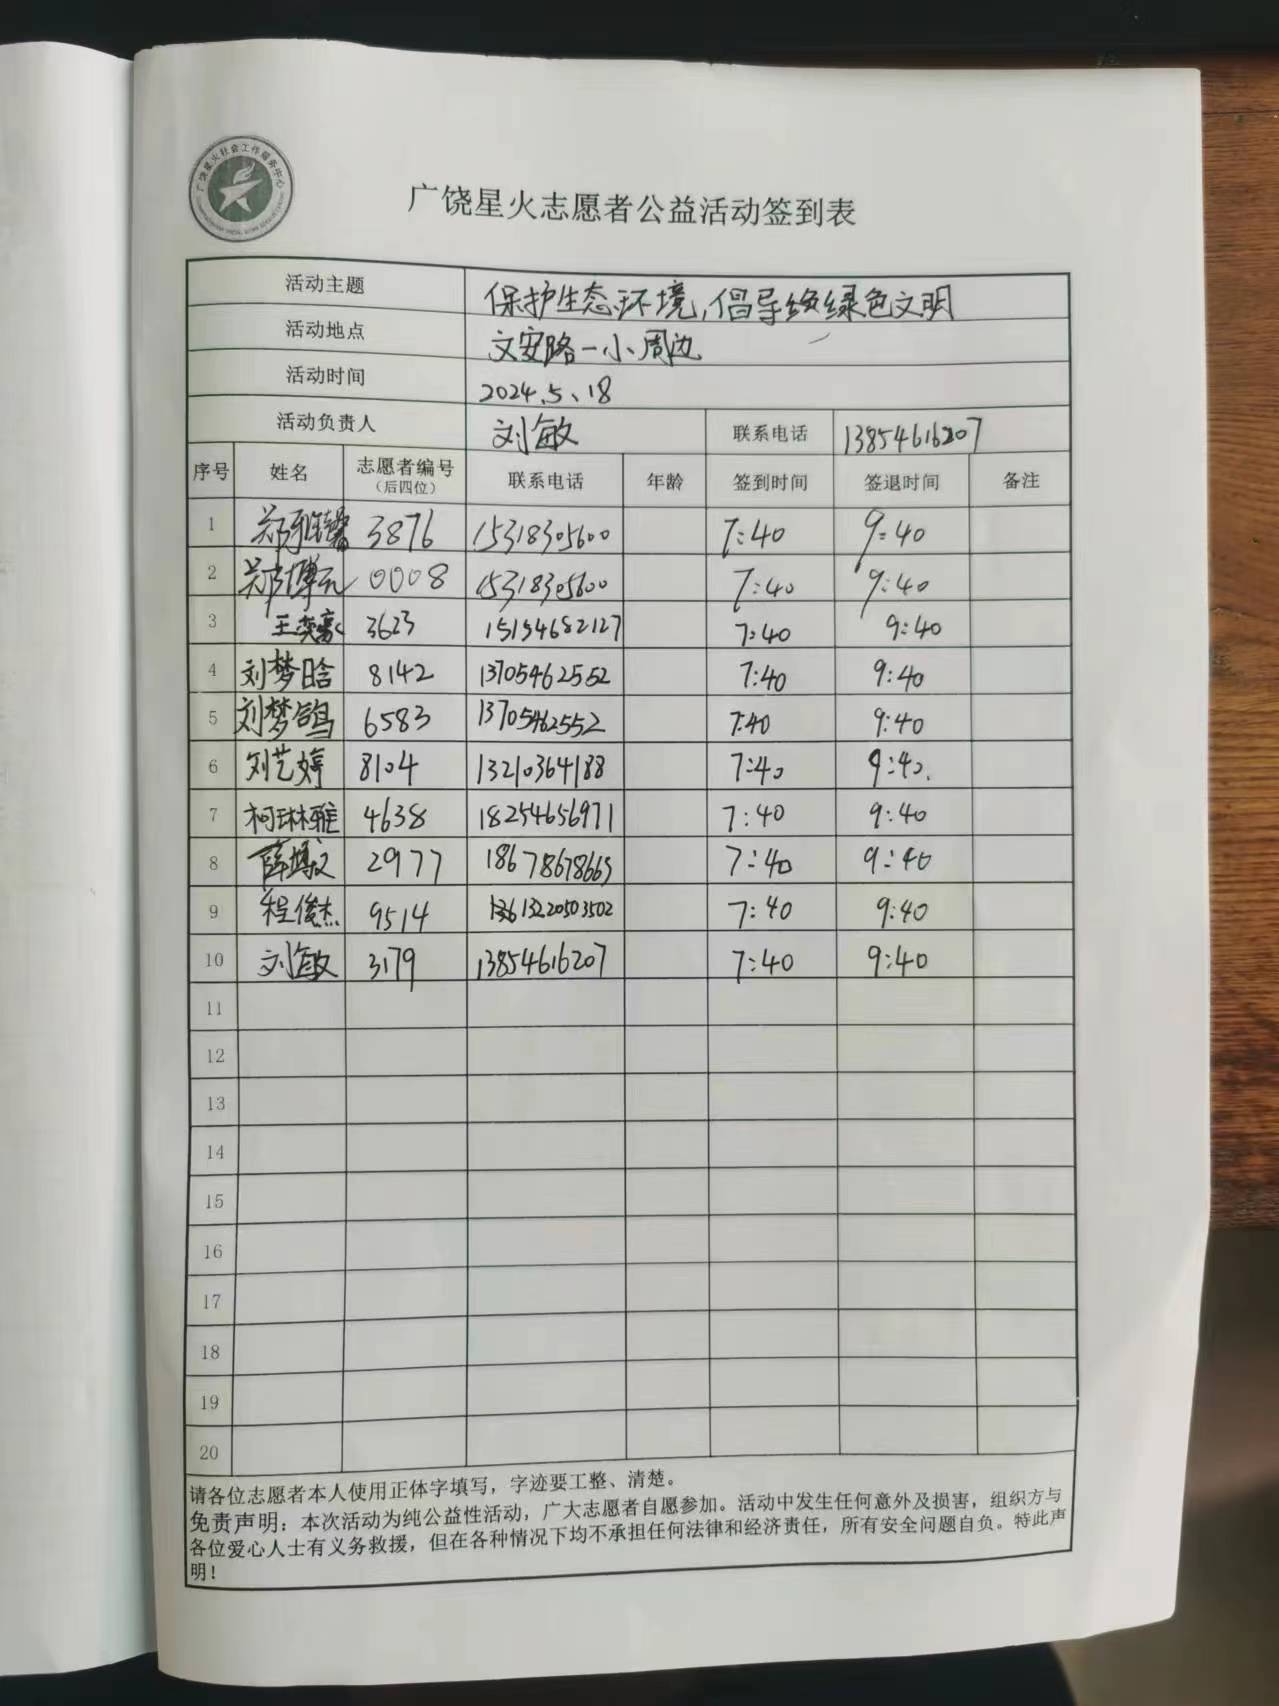 广饶星火社会工作服务中心
广饶星火志愿者公益活动签到表
活动主题 保护生态环境,倡导绿色文明
活动地点 文安路一小周边
活动时间 2024.5、18
活动负责人 刘敏 联系电话 13854616207
序号 姓名 志愿者编号 联系电话 年龄 签到时间 签退时间 备注
(后四位)
1 郑雅馨 3876 15318305600 7:40 9:40
2 郑博元 0008 15318305600 7:40 9:40
3 王奕豪 3623 15154682127 7:40 9:40
4 刘梦晗 8142 13705462552 7:40 9:40
5 刘梦鸽 6583 13705462552 7:40 9:40
6 刘艺婷 8104 13210364188 7:40 9:40.
7 柯琳雅 4638 18254656971 7:40 9:40
8 薛博文 2977 18678678665 7:40 9:40
9 程俊杰 9514 13220503502 7:40 9:40
10 刘敏 3179 13854616207 7:40 9:40
11
12
13
14
15
16
17
18
19
20
请各位志愿者本人使用正体字填写，字迹要工整、清楚。
免责声明：本次活动为纯公益性活动，广大志愿者自愿参加。活动中发生任何意外及损害，组织方与
各位爱心人士有义务救援，但在各种情况下均不承担任何法律和经济责任，所有安全问题自负。特此声
明！